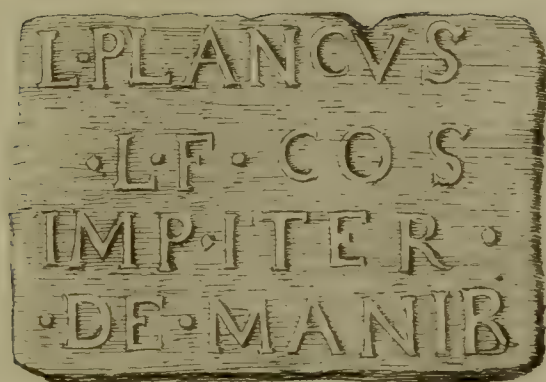 L·PLANCVS
·L·F·COS
IMP·ITER·
·DE·MANIB